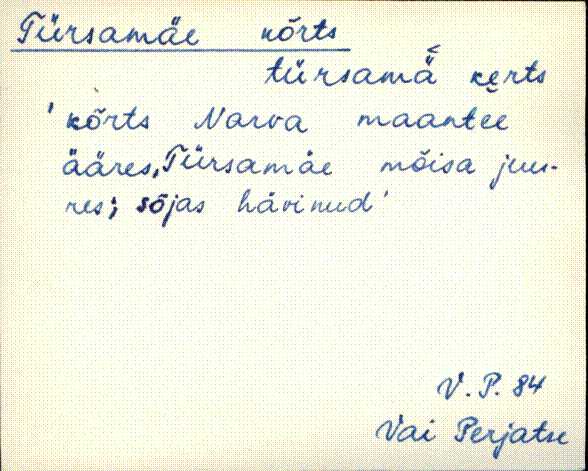 Türsamäe kõrts
türsamä̆ ke̮rts
'kõrts Narva maantee
ääres, Türsamäe mõisa juu-
res; sõjas hävinud'
V. P. 84
Vai Perjatse